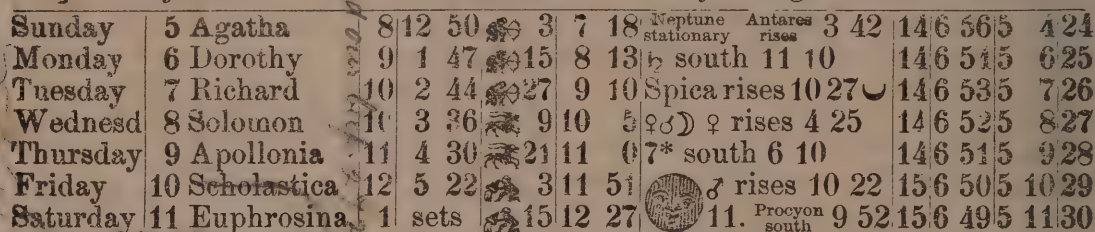 Sunday 5 Agatha 8 12 50 3 7 18 Neptune stationary Antares rises 3 42 14 6 56 5 4 24
Monday 6 Dorothy 9 1 47 15 8 13 ♄ south 11 10 14 6 54 5 6 25
Tuesday 7 Richard 10 2 44 27 9 10 Spica rises 10 27 14 6 53 5 7 26
Wednesd 8 Solomon 3 36 9 10 5 ♀☌☽ ♀ rises 4 25 14 6 52 5 8 27
Thursday 9 Apollonia 11 4 30 21 11 0 7* south 6 10 14 6 51 5 9 28
Friday 10 Scholastica 12 5 22 3 11 51 ♂ rises 10 22 15 6 50 5 10 29
Saturday 11 Euphrosina 1 sets 15 12 27 11. Procyon south 9 52 15 6 49 5 11 30